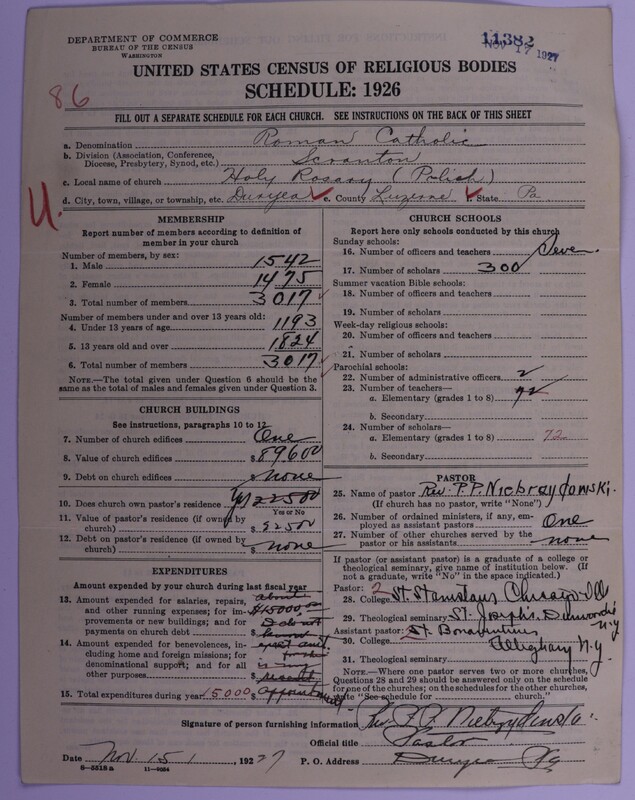 DEPARTMENT OF COMMERCE
BUREAU OF THE CENSUS
WASHINGTON
11382
NOV 17 1927
UNITED STATES CENSUS OF RELIGIOUS BODIES
SCHEDULE: 1926
86
FILL OUT A SEPARATE SCHEDULE FOR EACH CHURCH. SEE INSTRUCTIONS ON THE BACK OF THIS SHEET
a. Denomination Roman Catholic
b. Division (Association, Conference, Diocese, Presbytery, Synod, etc.) Scranton
c. Local name of church Holy Rosary (Polish)
d. City, town, village, or township, etc. Duryea e. County Luzerne f. State Pa
U.
MEMBERSHIP
Report number of members according to definition of
member in your church
Number of members, by sex:
1. Male 1542
2. Female 1475
3. Total number of members 3017
Number of members under and over 13 years old:
4. Under 13 years of age 1193
5. 13 years old and over 1824
6. Total number of members 3017
NOTE.—The total given under Question 6 should be
same as the total of males and females given under Question 3.
CHURCH BUILDINGS
See instructions, paragraphs 10 to 12
7. Number of church edifices One
8. Value of church edifices $ 89600
9. Debt on church edifices none
10. Does church own pastor's residence
Yes or No
11. Value of pastor's residence (if owned by
church) $
12. Debt on pastor's residence (if owned by
church) $ none
EXPENDITURES
Amount expended by your church during last fiscal year
13. Amount expended for salaries, repairs, about
and other running expenses; for im- $15000
provements or new buildings; and for I do not
payments on church debt know
14. Amount expended for benevolences, in-
cluding home and foreign missions; for
denominational support; and for all
other purposes
15. Total expenditures during year 15000 $
CHURCH SCHOOLS
Report here only schools conducted by this church
Sunday schools:
16. Number of officers and teachers Seven
17. Number of scholars 300
Summer vacation Bible schools:
18. Number of officers and teachers
19. Number of scholars
Week-day religious schools:
20. Number of officers and teachers
21. Number of scholars
Parochial schools:
22. Number of administrative officers 2
23. Number of teachers—
a. Elementary (grades 1 to 8)
b. Secondary
24. Number of scholars—
a. Elementary (grades 1 to 8) 72
b. Secondary
PASTOR
25. Name of pastor Rev. P.P.
(If church has no pastor, write "None")
26. Number of ordained ministers, if any, em-
ployed as assistant pastors One
27. Number of other churches served by the
pastor or his assistants none
If pastor (or assistant pastor) is a graduate of a college or
theological seminary, give name of institution below. (If
not a graduate, write "No" in the space indicated.)
Pastor: 2
28. College St. Stanislaus Chicago Ill
29. Theological seminary St. Joseph's Dunwoodie N.Y
Assistant pastor: St. Bonaventure
30. College Alleghany N.Y.
31. Theological seminary
NOTE.—Where one pastor serves two or more churches,
Questions 28 and 29 should be answered only on the schedule
for one of the churches; on the schedules for the other churches,
write "See schedule for church."
Signature of person furnishing information Rev.
Official title Pastor
Date Nov. 15, 1927 P. O. Address Duryea Pa
8—5518a 11—9034